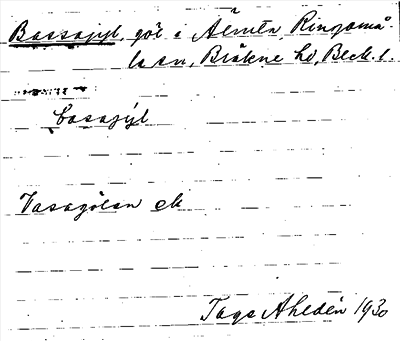 Bassagyl, göl i Älmta Ringamå-
la sn, Bräkne hd, Blek. l.
basagýl
Vasagölen ek
Tage Ahldén 1930